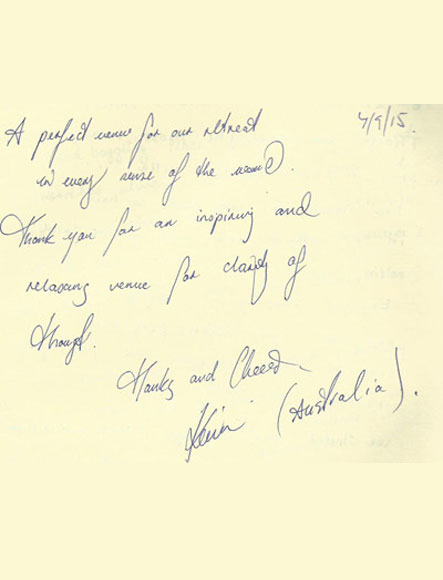 4/9/15.
A perfect venue for our retreat
in every sense of the word.
Thank you for an inspiring and
relaxing venue for clarity of
thought.
Thanks and Cheers
(Australia).